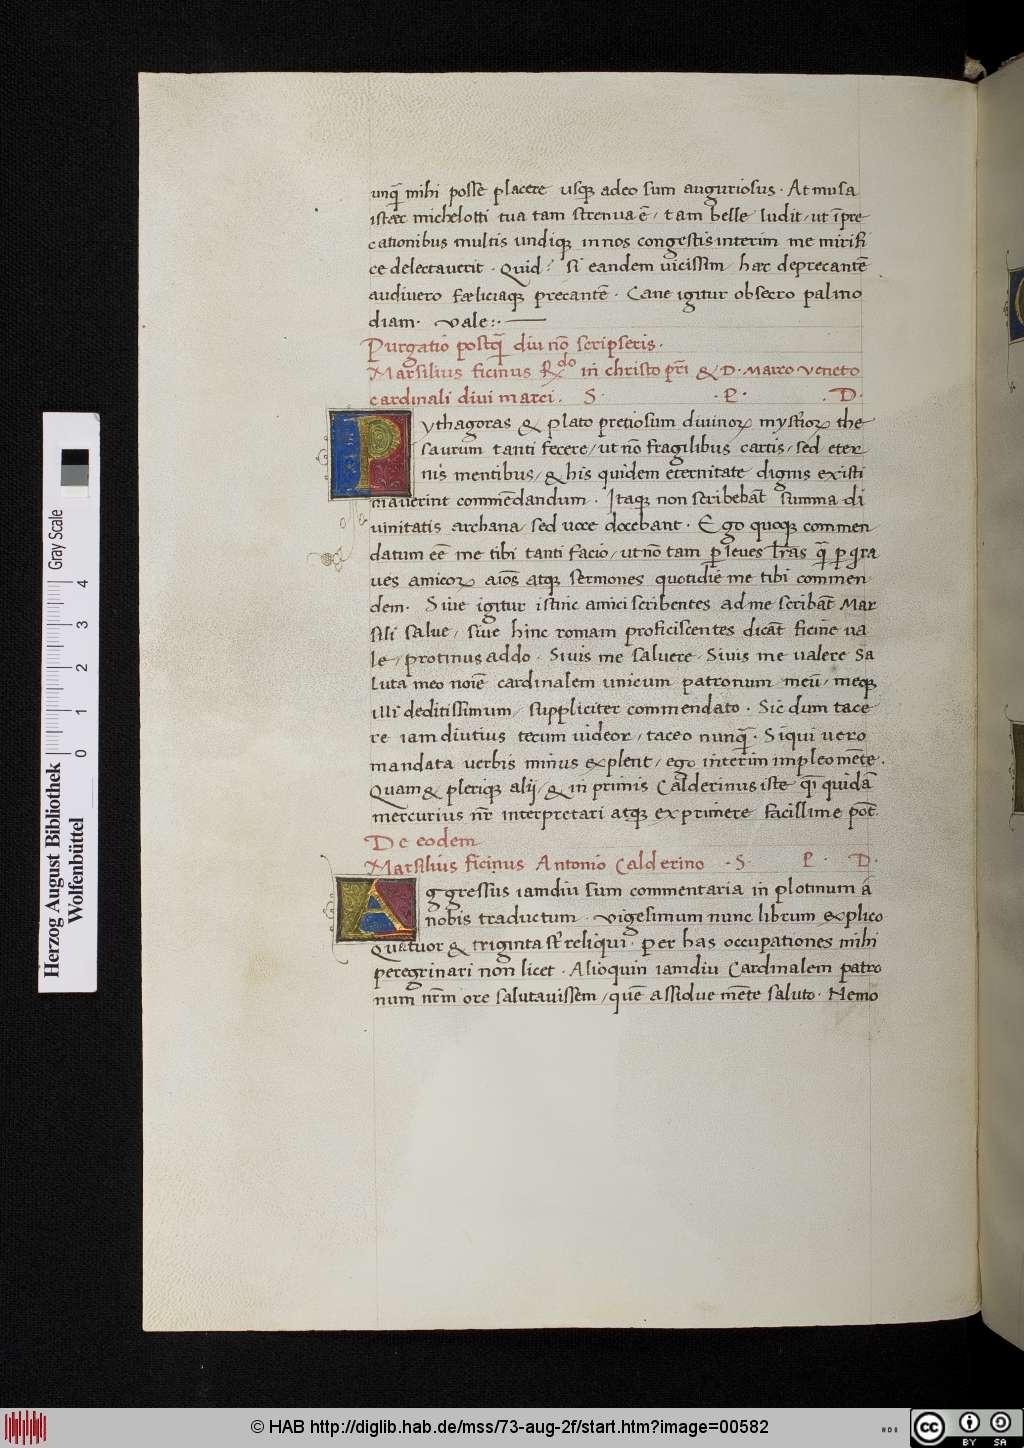 unq̃ mihi posse placere usq; adeo sum auguriosus · At musa
istæc michelotti tua tam strenua ẽ / tam belle ludit / ut ĩpre
cationibus multis undiq; in nos congestis interim me mirifi
ce delectaverit · Quid? si eandem uicissim hæc deprecantẽ
audivero fæliciaq; precantẽ · Cane igitur obsecro palino
diam · Vale :· —
Purgatio postq̃ diu nõ scripseris ·
Marsilius ficinus Rdo in christo pr̃i & D · Marco veneto
cardinali divi marci · S · P · D ·
Pythagoras & plato pretiosum diuinoꝝ mystioꝝ the
saurum tanti fecere / ut nõ fragilibus cartis / sed eter
nis mentibus / & his quidem eternitate dignis existi
mauerint commẽdandum · Itaq; non scribebãt summa di
uinitatis archana / sed uoce docebant · Ego quoq; commen
datum eẽ me tibi tanti facio / ut nõ tam ꝑ leues lr̃as q̃ ꝑ gra
ues amicoꝝ aĩos atq; sermones quotidie me tibi commen
dem · Siue igitur istinc amici scribentes ad me scribãt Mar
sili salue / siue hinc romam proficiscentes dicãt ficine ua
le / protinus addo · Siuis me saluere · Siuis me ualere Sa
luta meo noĩe cardinalem unicum patronum meũ / meq;
illi deditissimum / suppliciter commendato · Sic dum tace
re iam diutius tecum uideor / taceo nunq̃ · Siqui uero
mandata uerbis minus explent / ego interim impleo mẽte ·
Quam & pleriq; alij / & in primis Calderinus iste q̃i quidã
mercurius nr̃ interpretari atq; exprimere facillime põt ·
De eodem
Marsilius ficinus Antonio Calderino · S · P · D ·
Aggressus iamdiu sum commentaria in plotinum a
nobis traductum · Vigesimum nunc librum explico
Quatuor & triginta st̃ reliqui · Per has occupationes mihi
peregrinari non licet · Alioquin iamdiu Cardinalem patro
num nr̃m ore salutauissem / quẽ assidue mẽte saluto · Nemo
Herzog August Bibliothek
Wolfenbüttel
0 1 2 3 4
Gray Scale
© HAB http://diglib.hab.de/mss/73-aug-2f/start.htm?image=00582
cc BY SA